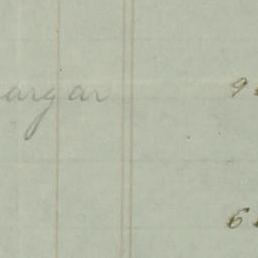 argar 9
6